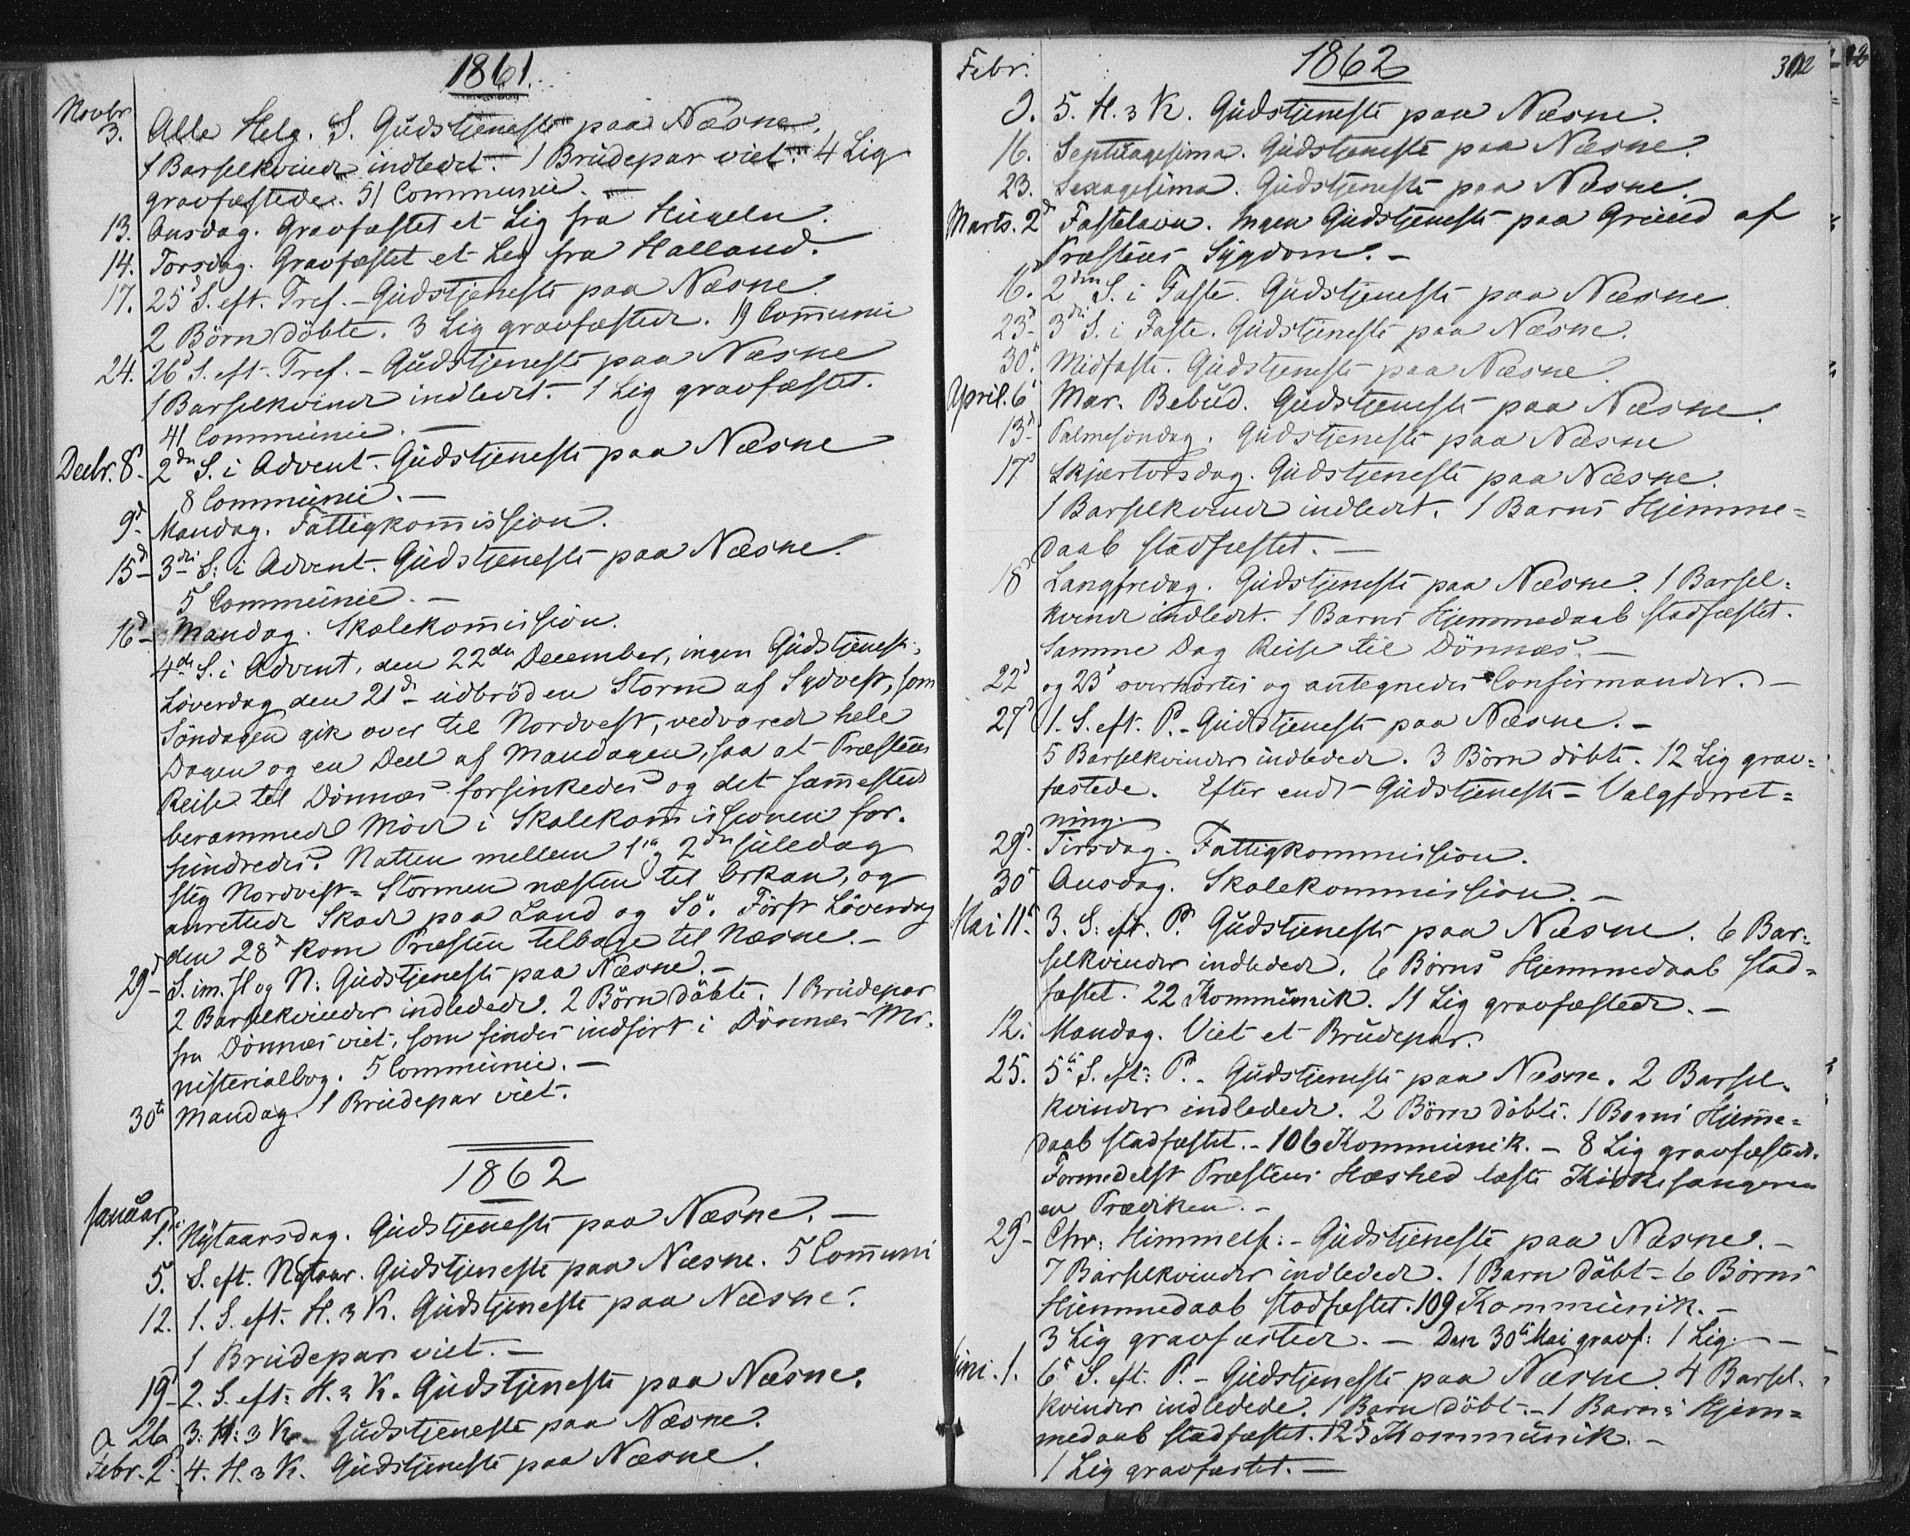 1861.
Novbr.
3. Alle Helg. S. Gudstjeneste paa Næsne.
1 Barselkvinde indledet. 1 Brudepar viet. 4 Lig
gravfæstede. 51 Communic. —
13. Onsdag. Gravfæstet et Lig fra Hugeln.
14. Torsdag. Gravfæstet et Lig fra Halland.
17. 25d S. eft. Tref. – Gudstjeneste paa Næsne
2 Börn döbte. 3 Lig gravfæstede. 19 Com̄unic
24. 26d S. eft. Tref. – Gudstjeneste paa Næsne
1 Barselkvinde indledet. 1 Lig gravfæstet.
41 Communic. —
Decbr. 8d 2den S. i Advent. Gudstjeneste paa Næsne
8 Communic. —
9d Mandag. Fattigkom̄ission.
15d 3die S. i Advent. Gudstjeneste paa Næsne.
5 Communic. —
16d Mandag. Skolekom̄ission.
4de S. i Advent, den 22den December, ingen Gudstjenest;
Löverdag den 21d udbröd en Storm af Sydvest, som
Söndagen gik over til Nordvest, vedvarede hele
Dagen og en Deel af Mandagen, saa at Præstens
Reise til Dönnæs forsinkedes og det sam̄esteds
berammede Möde i Skolekom̄issionen for-
hindredes. Natten mellem 1 og 2den Juledag
steg Nordvest-Stormen næsten til Orkan, og
anrettede Skade paa Land og Sö. Först Löverdag
den 28d kom Præsten tilbage til Næsne. –
29d S. im. J og N. Gudstjeneste paa Næsne. –
2 Barselkvinder indledede. 2 Börn döbte. 1 Brudepar
fra Dönnæs viet, som findes indfört i Dönnæs Mi-
nisterialbog. 5 Communic. —
30te Mandag. 1 Brudepar viet.
1862
Januar
1. Nytaarsdag. Gudstjeneste paa Næsne. —
5. S. eft. Nytaar. Gudstjeneste paa Næsne. 5 Com̄uni
12. 1. S. eft. H. 3 K. Gudstjeneste paa Næsne.
1 Brudepar viet. —
19d 2. S. eft. H. 3 K. Gudstjeneste paa Næsne.
26 3. H. 3 K. Gudstjeneste paa Næsne.
Febr. 2. 4. H. 3 K. Gudstjeneste paa Næsne.
Febr. 1862 302
9. 5. H. 3 K. Gudstjeneste paa Næsne.
16. Septuagesima. Gudstjeneste paa Næsne.
23. Sexagesima. Gudstjeneste paa Næsne.
Marts. 2d Fastelavn. Ingen Gudstjeneste paa Grund af
Præstens Sygdom. –
16d 2den S. i Faste. Gudstjeneste paa Næsne
23d 3die S. i Faste. Gudstjeneste paa Næsne.
30d Midfaste. Gudstjeneste paa Næsne.
April. 6d Mar. Bebud. Gudstjeneste paa Næsne.
13d Palmesöndag. Gudstjeneste paa Næsne
17d Skjærtorsdag. Gudstjeneste paa Næsne.
1 Barselkvinde indledet. 1 Barns Hjemme-
daab stadfæstet. —
18d Langfredag. Gudstjeneste paa Næsne. 1 Barsel-
kvinde indledet. 1 Barns Hjemmedaab stadfæstet.
Samme Dag Reise til Dönnæs. —
22d og 23d overhörtes og antegnedes Confirmander. —
27d 1. S. eft. P. – Gudstjeneste paa Næsne. –
5 Barselkvinder indledede. 3 Börn döbte. 12 Lig grav-
fæstede. Efter endt Gudstjeneste – Valgforret-
ning.
29d Tirsdag. Fattigkommission.
30d Onsdag. Skolekommission. –
Mai 11d 3. S. eft. P. Gudstjeneste paa Næsne. 6 Bar-
selkvinder indledede. 6 Börns Hjemmedaab stad-
fæstet. 22 Kommunik. 11 Lig gravfæstede. –
12. Mandag. Viet et Brudepar.
25. 5te S. eft. P. – Gudstjeneste paa Næsne. 2 Barsel-
kvinder indledede. 2 Börn döbte. 1 Barns Hjem̄e-
daab stadfæstet. – 106 Kommunik. – 8 Lig gravfæstede.
Formedelst Præstens Hæshed læste Kirkesangeren
en Prædiken. –
29d Chr. Himmelf. – Gudstjeneste paa Næsne. –
7 Barselkvinder indledede. 1 Barn döbt – 6 Börns
Hjemmedaab stadfæstet. 109 Kommunik. –
3 Lig gravfæstede. – Den 30te Mai gravf. 1 Lig. —
Juni. 1. 6d S. eft. P. – Gudstjeneste paa Næsne. 4 Barsel-
kvinder indledede. 1 Barn döbt. – 1 Barns Hjem-
medaab stadfæstet. 125 Kommunik. –
1 Lig gravfæstet. —